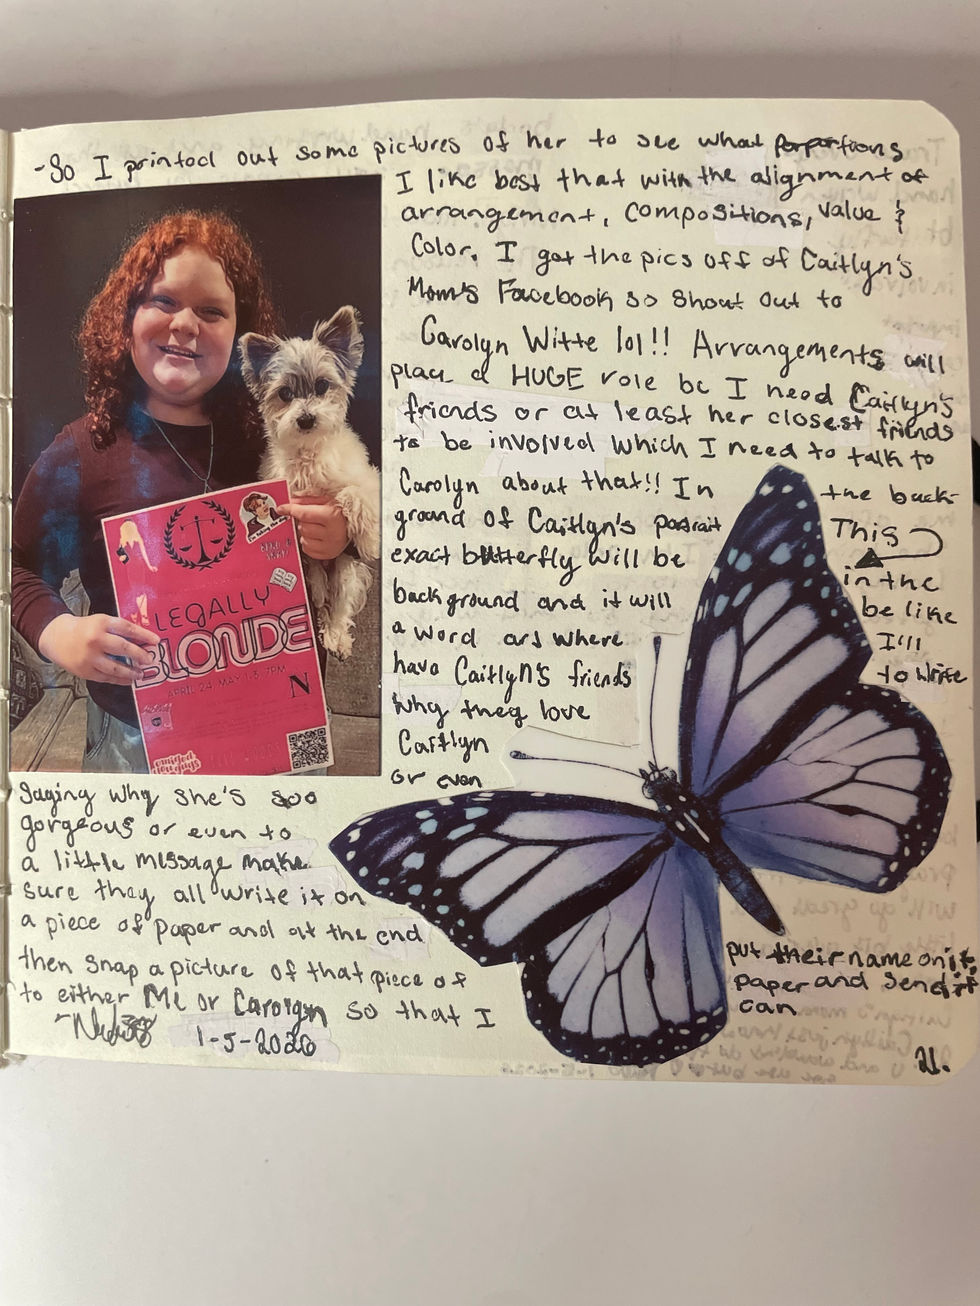 -So I printed out some pictures of her to see what Porportions
I like best that with the alignment of
arrangement, compositions, value &
Color. I got the pics off of Caitlyn's
Mom's Facebook so shout out to
Carolyn Witte lol!! Arrangements will
play a HUGE role bc I need Caitlyn's
friends or at least her closest friends
to be involved which I need to talk to
Carolyn about that!! In the back-
ground of Caitlyn's portrait This
exact butterfly will be in the
background and it will be like
a word art where I'll
have Caitlyn's friends to write
Why they love
Caitlyn
or even
Saying why she's soo
gorgeous or even to
a little message make
sure they all write it on
a piece of paper and at the end put their name on it
then snap a picture of that piece of paper and send it
to either Me or Carolyn so that I can
1-5-2026
21.
LEGALLY
BLONDE
APRIL 24, MAY 1-3, 7PM
N